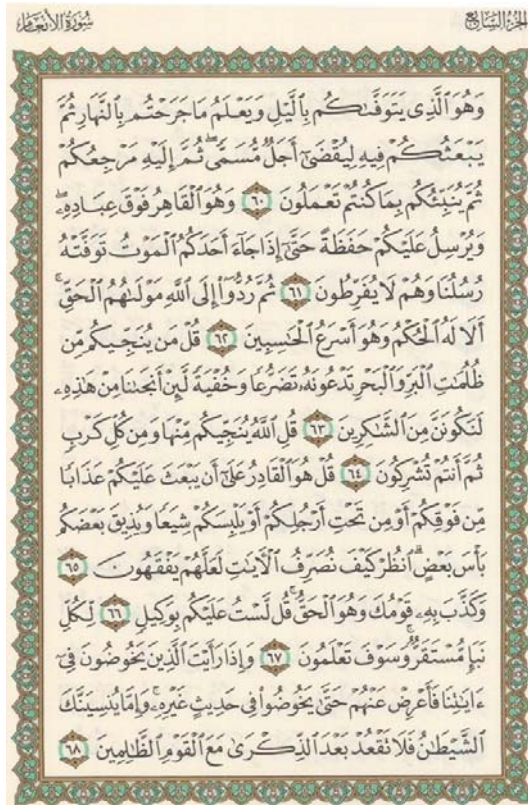 الجزء السابع
سورة الأنعام
وَهُوَ ٱلَّذِى يَتَوَفَّىٰكُم بِٱلَّيْلِ وَيَعْلَمُ مَا جَرَحْتُم بِٱلنَّهَارِ ثُمَّ
يَبْعَثُكُمْ فِيهِ لِيُقْضَىٰٓ أَجَلٌ مُّسَمًّى ۖ ثُمَّ إِلَيْهِ مَرْجِعُكُمْ
ثُمَّ يُنَبِّئُكُم بِمَا كُنتُمْ تَعْمَلُونَ ٦٠ وَهُوَ ٱلْقَاهِرُ فَوْقَ عِبَادِهِۦ ۖ
وَيُرْسِلُ عَلَيْكُمْ حَفَظَةً حَتَّىٰٓ إِذَا جَآءَ أَحَدَكُمُ ٱلْمَوْتُ تَوَفَّتْهُ
رُسُلُنَا وَهُمْ لَا يُفَرِّطُونَ ٦١ ثُمَّ رُدُّوٓا۟ إِلَى ٱللَّهِ مَوْلَىٰهُمُ ٱلْحَقِّ ۚ
أَلَا لَهُ ٱلْحُكْمُ وَهُوَ أَسْرَعُ ٱلْحَـٰسِبِينَ ٦٢ قُلْ مَن يُنَجِّيكُم مِّن
ظُلُمَـٰتِ ٱلْبَرِّ وَٱلْبَحْرِ تَدْعُونَهُۥ تَضَرُّعًا وَخُفْيَةً لَّئِنْ أَنجَىٰنَا مِنْ هَـٰذِهِۦ
لَنَكُونَنَّ مِنَ ٱلشَّـٰكِرِينَ ٦٣ قُلِ ٱللَّهُ يُنَجِّيكُم مِّنْهَا وَمِن كُلِّ كَرْبٍ
ثُمَّ أَنتُمْ تُشْرِكُونَ ٦٤ قُلْ هُوَ ٱلْقَادِرُ عَلَىٰٓ أَن يَبْعَثَ عَلَيْكُمْ عَذَابًا
مِّن فَوْقِكُمْ أَوْ مِن تَحْتِ أَرْجُلِكُمْ أَوْ يَلْبِسَكُمْ شِيَعًا وَيُذِيقَ بَعْضَكُم
بَأْسَ بَعْضٍ ۗ ٱنظُرْ كَيْفَ نُصَرِّفُ ٱلْـَٔايَـٰتِ لَعَلَّهُمْ يَفْقَهُونَ ٦٥
وَكَذَّبَ بِهِۦ قَوْمُكَ وَهُوَ ٱلْحَقُّ ۚ قُل لَّسْتُ عَلَيْكُم بِوَكِيلٍ ٦٦ لِّكُلِّ
نَبَإٍ مُّسْتَقَرٌّ ۚ وَسَوْفَ تَعْلَمُونَ ٦٧ وَإِذَا رَأَيْتَ ٱلَّذِينَ يَخُوضُونَ فِىٓ
ءَايَـٰتِنَا فَأَعْرِضْ عَنْهُمْ حَتَّىٰ يَخُوضُوا۟ فِى حَدِيثٍ غَيْرِهِۦ ۚ وَإِمَّا يُنسِيَنَّكَ
ٱلشَّيْطَـٰنُ فَلَا تَقْعُدْ بَعْدَ ٱلذِّكْرَىٰ مَعَ ٱلْقَوْمِ ٱلظَّـٰلِمِينَ ٦٨